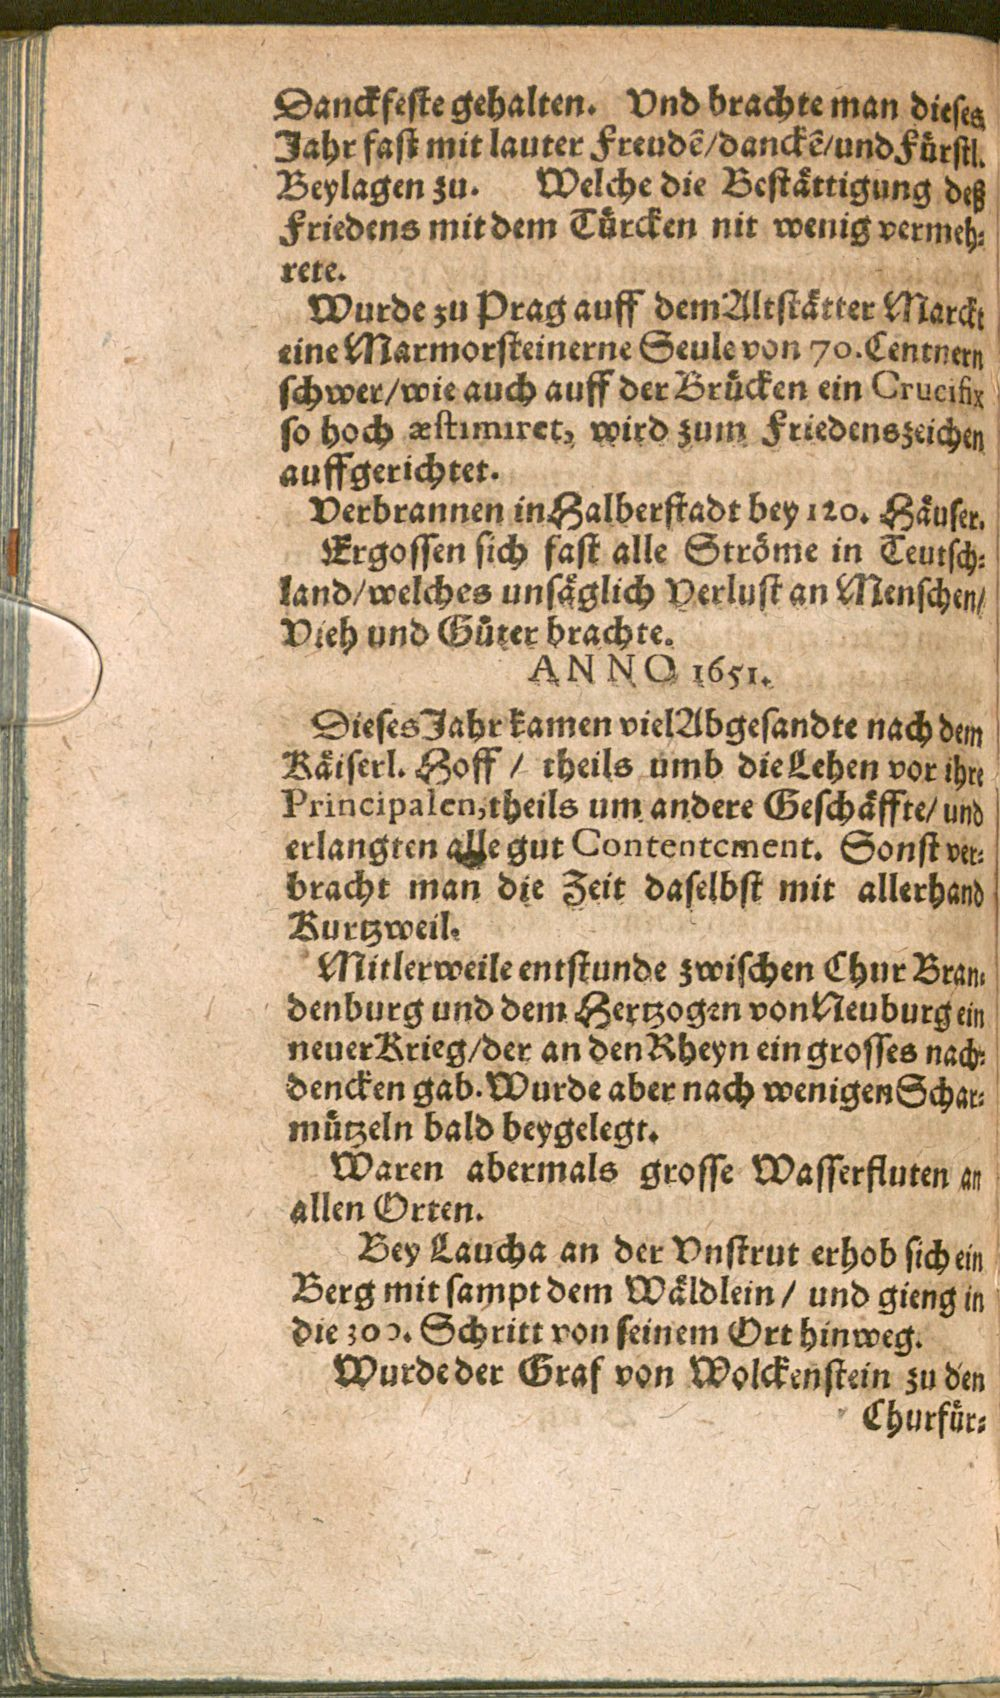 Danckfeste gehalten. Vnd brachte man dieses
Jahr fast mit lauter Freudẽ/danckẽ/und Fürstl.
Beylagen zu. Welche die Bestättigung deß
Friedens mit dem Türcken nit wenig vermeh-
rete.
Wurde zu Prag auff dem Altstätter Marckt
eine Marmorsteinerne Seule von 70. Centnern
schwer/wie auch auff der Brücken ein Crucifix
so hoch æstimiret, wird zum Friedenszeichen
auffgerichtet.
Verbrannen in Halberstadt bey 120. Häuser.
Ergossen sich fast alle Ströme in Teutsch-
land/welches unsäglich Verlust an Menschen/
Vieh und Güter brachte.
ANNO 1651.
Dieses Jahr kamen viel Abgesandte nach dem
Käiserl. Hoff / theils umb die Lehen vor ihre
Principalen, theils um andere Geschäffte/ und
erlangten alle gut Contentement. Sonst ver-
bracht man die Zeit daselbst mit allerhand
Kurtzweil.
Mitlerweile entstunde zwischen Chur Bran-
denburg und dem Hertzogen von Neuburg ein
neuer Krieg/der an den Rheyn ein grosses nach-
dencken gab. Wurde aber nach wenigen Schar-
mützeln bald beygelegt.
Waren abermals grosse Wasserfluten an
allen Orten.
Bey Laucha an der Vnstrut erhob sich ein
Berg mit sampt dem Wäldlein / und gieng in
die 300. Schritt von seinem Ort hinweg.
Wurde der Graf von Wolckenstein zu den
Churfür-